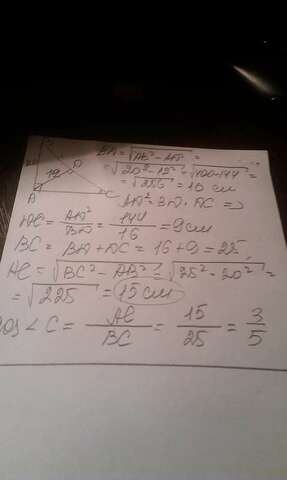 B
20
12
D
A
C
BD = √AB² - AD² =
= √20² - 12² = √400 - 144 =
= √256 = 16 см
AD² = BD · DC ⇒
DC = AD²/BD = 144/16 = 9 см
BC = BD + DC = 16 + 9 = 25.
AC = √BC² - AB² = √25² - 20² =
= √225 = 15 см
cos ∠C = AC/BC = 15/25 = 3/5